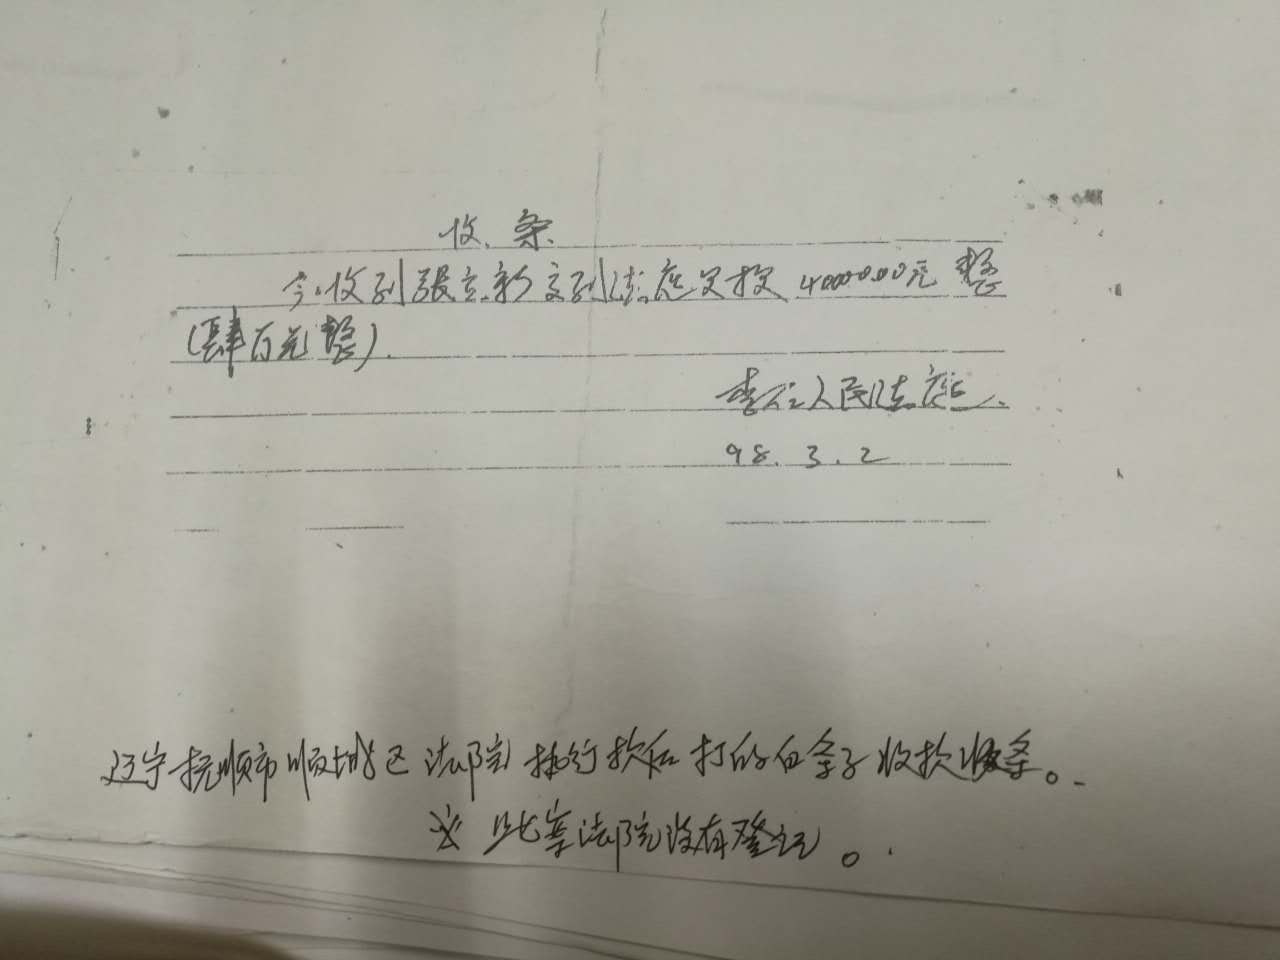 收条
今收到張立新交到法庭欠款 4000.00元 整
(肆百元 整).
李石人民法庭.
98.3.2
辽宁抚顺市顺城区法院执行款后打的白条子收款收条。
※ 此案法院没有登记。